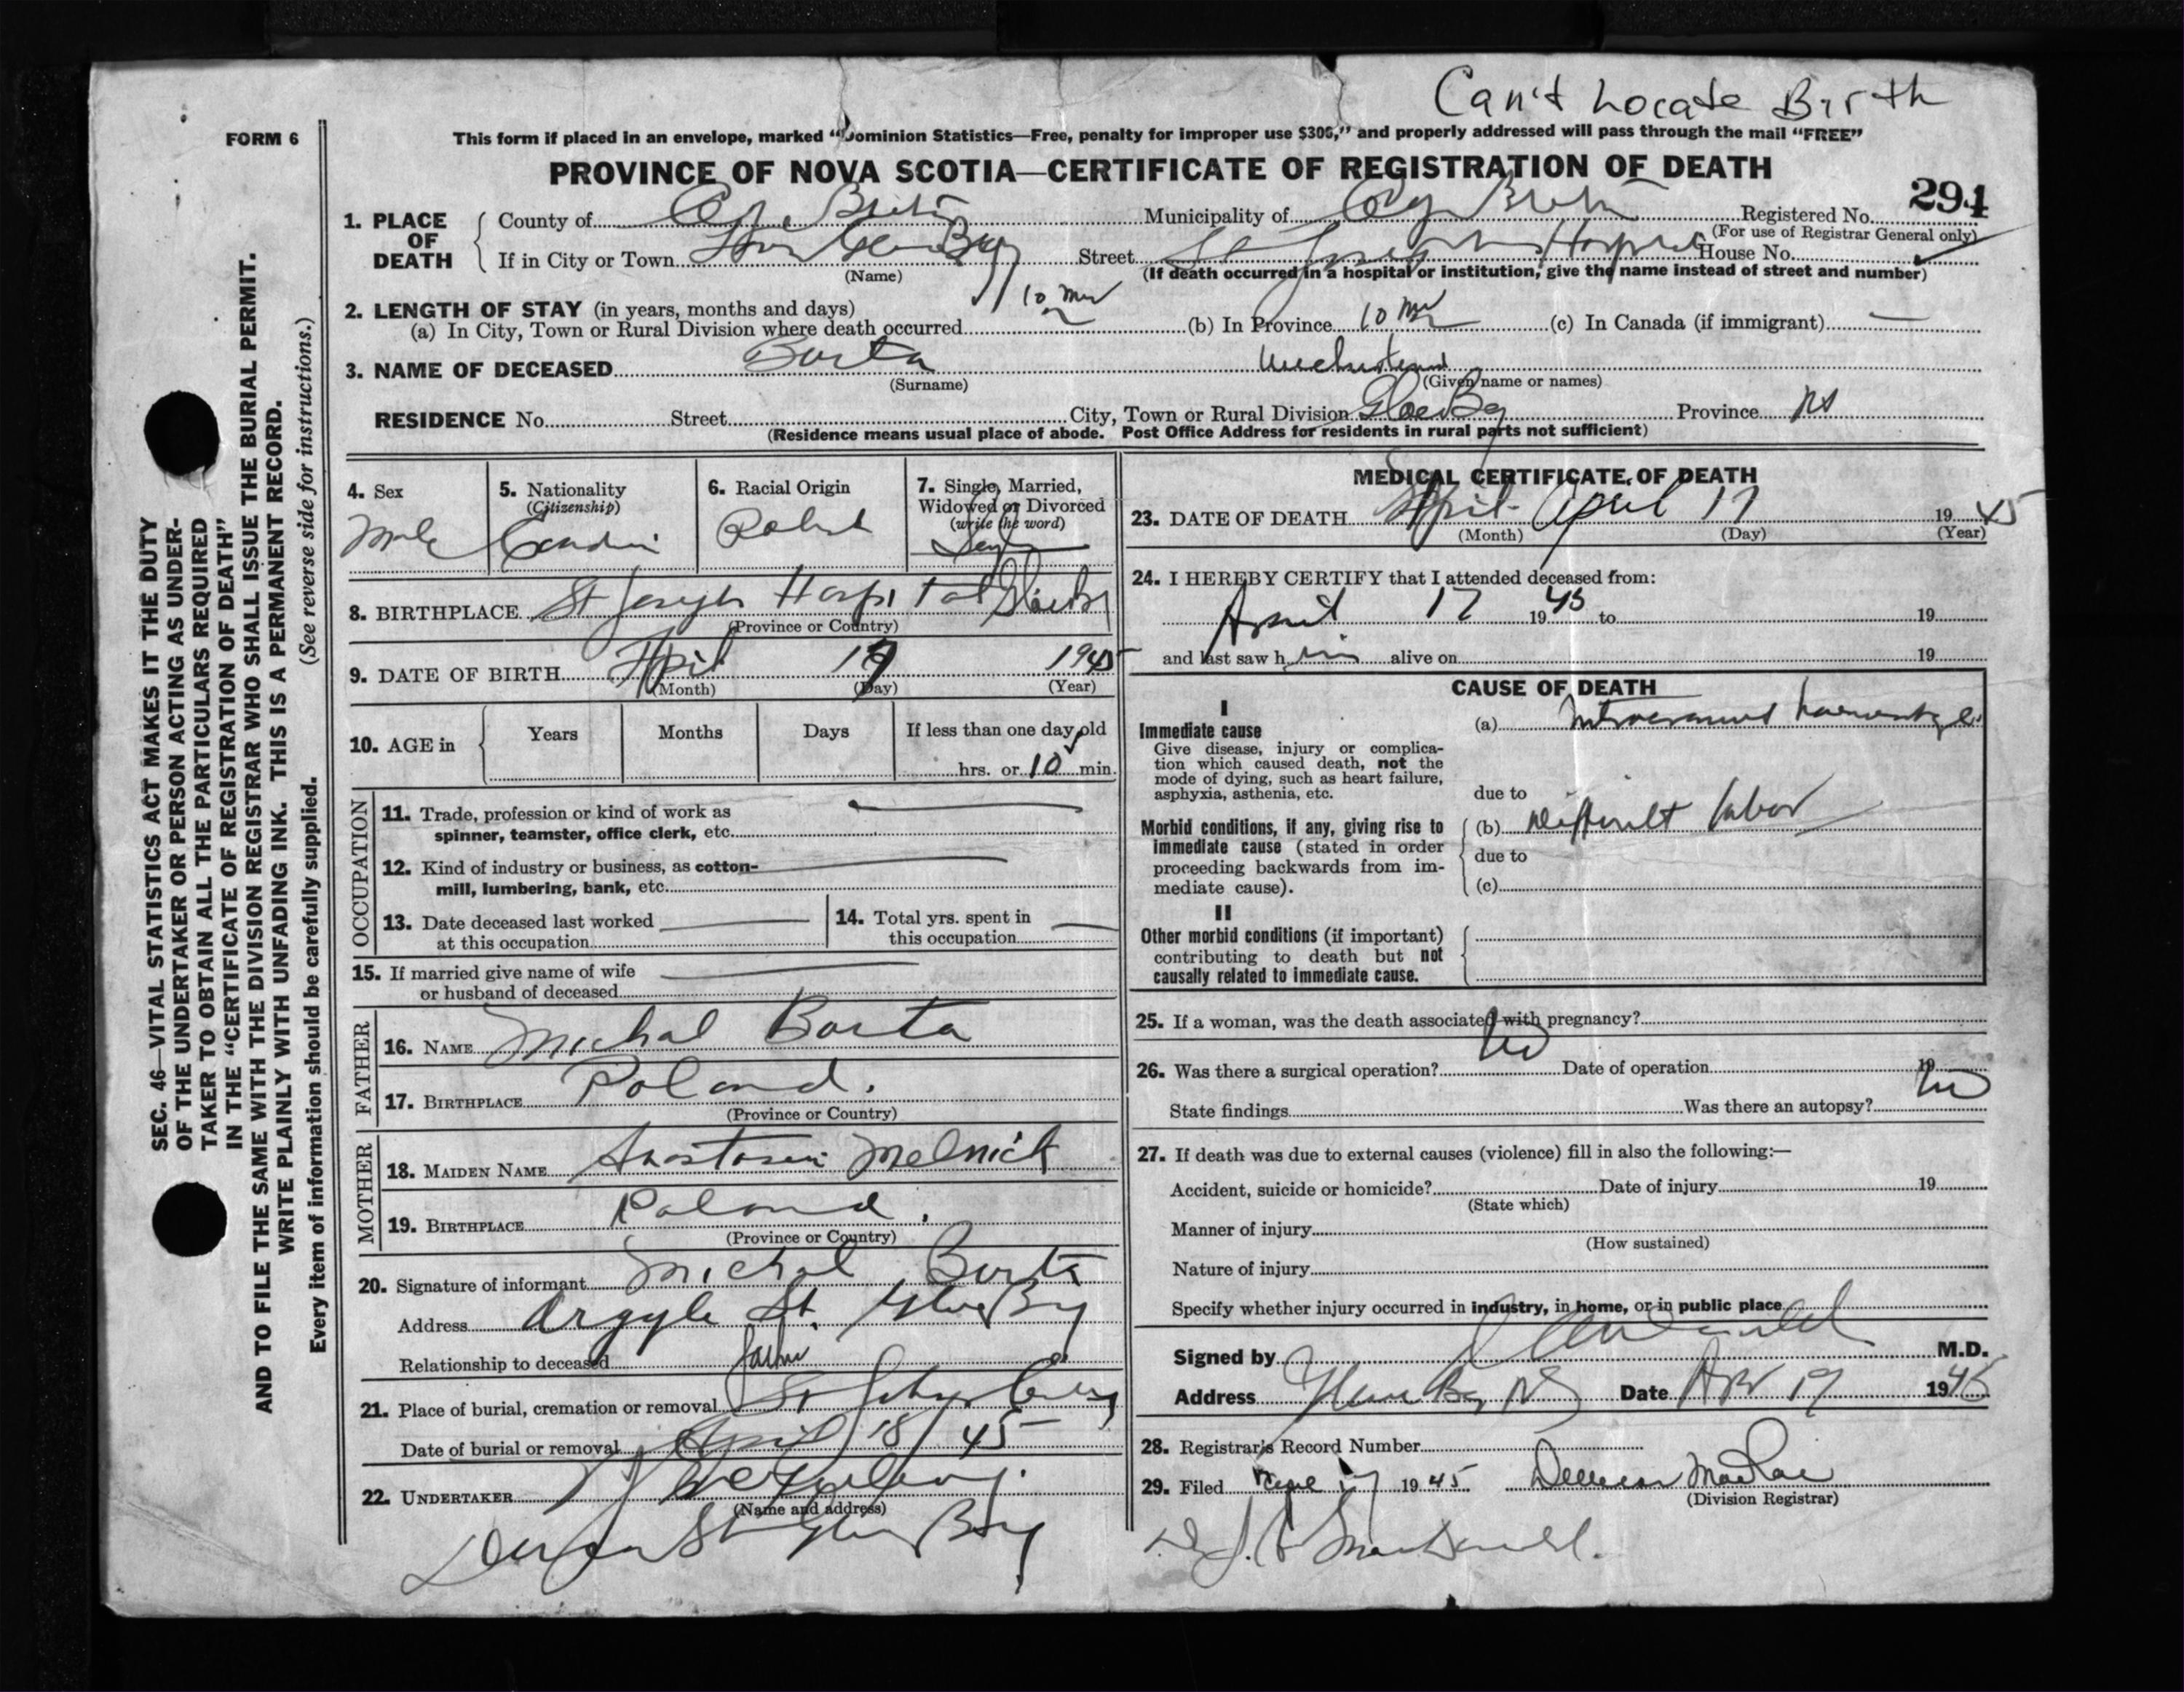 Can't Locate Birth
FORM 6
This form if placed in an envelope, marked "Dominion Statistics—Free, penalty for improper use $300," and properly addressed will pass through the mail "FREE"
PROVINCE OF NOVA SCOTIA—CERTIFICATE OF REGISTRATION OF DEATH
294
1. PLACE OF DEATH
County of Cape Breton Municipality of Cape Breton Registered No.
(For use of Registrar General only)
If in City or Town Glace Bay Street St Joseph's Hospital House No.
(Name) (If death occurred in a hospital or institution, give the name instead of street and number)
2. LENGTH OF STAY (in years, months and days)
(a) In City, Town or Rural Division where death occurred 10 min (b) In Province 10 min (c) In Canada (if immigrant) —
3. NAME OF DECEASED Borta
(Surname) (Given name or names)
RESIDENCE No. Street City, Town or Rural Division Glace Bay Province NS
(Residence means usual place of abode. Post Office Address for residents in rural parts not sufficient)
4. Sex
Male
5. Nationality
(Citizenship)
Canadian
6. Racial Origin
7. Single, Married,
Widowed or Divorced
(write the word)
Single
8. BIRTHPLACE St Joseph Hospital Glace Bay
(Province or Country)
9. DATE OF BIRTH April 17 1945
(Month) (Day) (Year)
10. AGE in Years Months Days If less than one day old
hrs. or 10 min.
OCCUPATION
11. Trade, profession or kind of work as
spinner, teamster, office clerk, etc.
12. Kind of industry or business, as cotton-
mill, lumbering, bank, etc.
13. Date deceased last worked
at this occupation
14. Total yrs. spent in
this occupation
15. If married give name of wife
or husband of deceased
FATHER
16. NAME Michal Borta
17. BIRTHPLACE Poland.
(Province or Country)
MOTHER
18. MAIDEN NAME Melnick
19. BIRTHPLACE Poland.
(Province or Country)
20. Signature of informant Michal Borta
Address Argyle St. Glace Bay
Relationship to deceased father
21. Place of burial, cremation or removal St
Date of burial or removal April 18/45
22. UNDERTAKER
(Name and address)
St Glace Bay
MEDICAL CERTIFICATE OF DEATH
23. DATE OF DEATH April April 17 1945
(Month) (Day) (Year)
24. I HEREBY CERTIFY that I attended deceased from:
April 17 1945 to 19
and last saw him alive on 19
CAUSE OF DEATH
I
Immediate cause
Give disease, injury or complica-
tion which caused death, not the
mode of dying, such as heart failure,
asphyxia, asthenia, etc.
(a) Intracranial haemorrhage
due to
Morbid conditions, if any, giving rise to
immediate cause (stated in order
proceeding backwards from im-
mediate cause).
(b) Difficult labor
due to
(c)
II
Other morbid conditions (if important)
contributing to death but not
causally related to immediate cause.
25. If a woman, was the death associated with pregnancy?
26. Was there a surgical operation? No Date of operation 19
State findings Was there an autopsy? No
27. If death was due to external causes (violence) fill in also the following:—
Accident, suicide or homicide? Date of injury 19
(State which)
Manner of injury
(How sustained)
Nature of injury
Specify whether injury occurred in industry, in home, or in public place
Signed by M.D.
Address Glace Bay NS Date Apr 17 1945
28. Registrar's Record Number
29. Filed 17 1945 MacRae
(Division Registrar)
SEC. 46—VITAL STATISTICS ACT MAKES IT THE DUTY
OF THE UNDERTAKER OR PERSON ACTING AS UNDER-
TAKER TO OBTAIN ALL THE PARTICULARS REQUIRED
IN THE "CERTIFICATE OF REGISTRATION OF DEATH"
AND TO FILE THE SAME WITH THE DIVISION REGISTRAR WHO SHALL ISSUE THE BURIAL PERMIT.
WRITE PLAINLY WITH UNFADING INK. THIS IS A PERMANENT RECORD.
Every item of information should be carefully supplied. (See reverse side for instructions.)